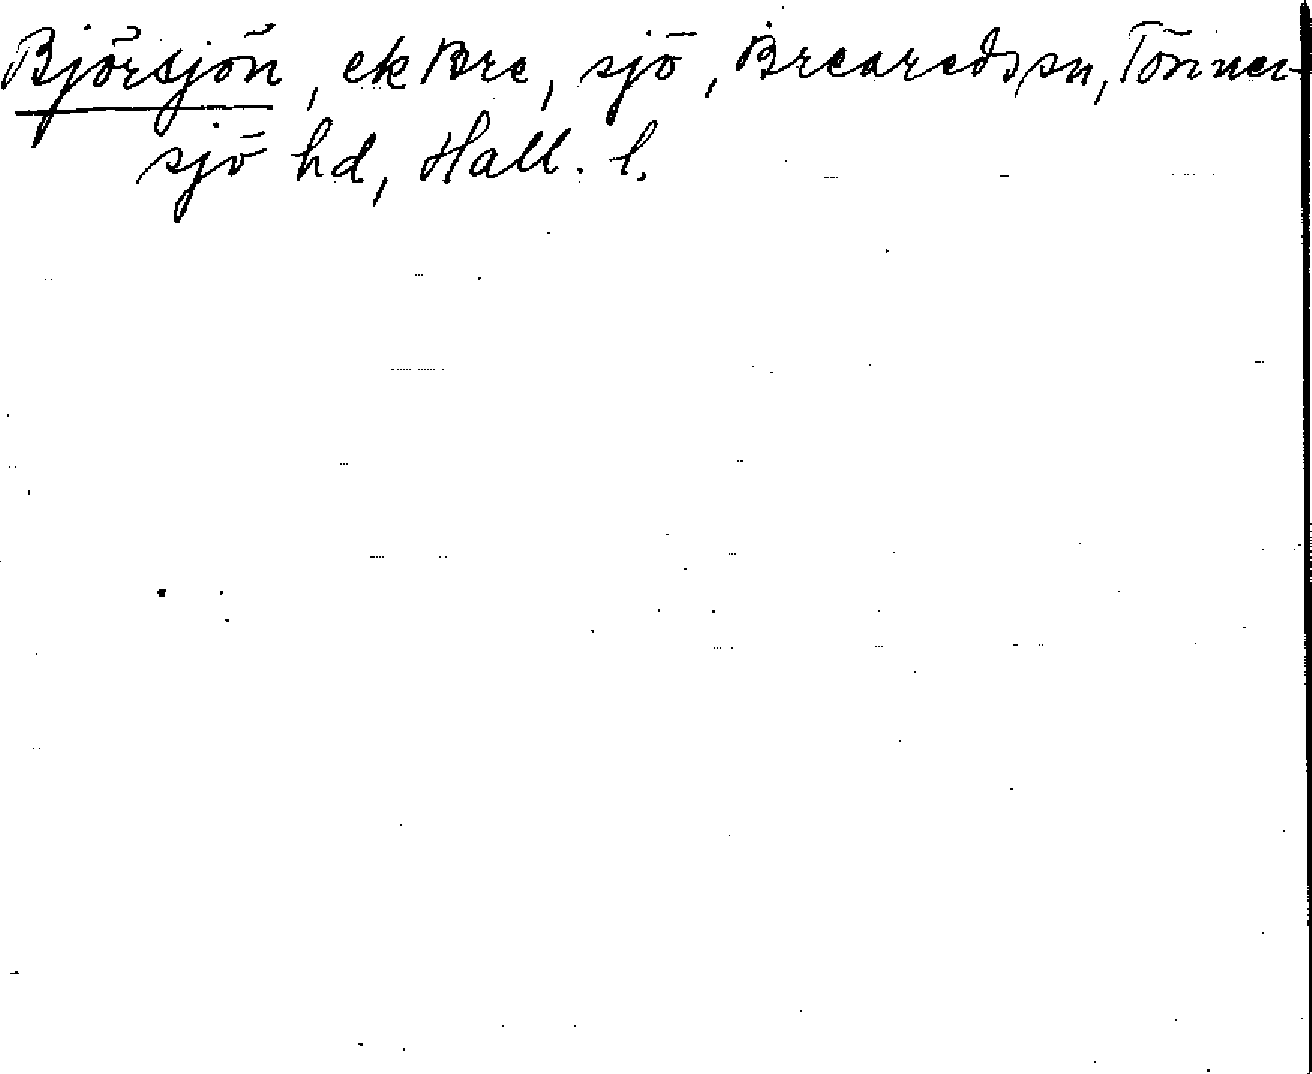 Björsjön, ek Bre, sjö, Breareds sn, Tönner-
sjö hd, Hall. l.